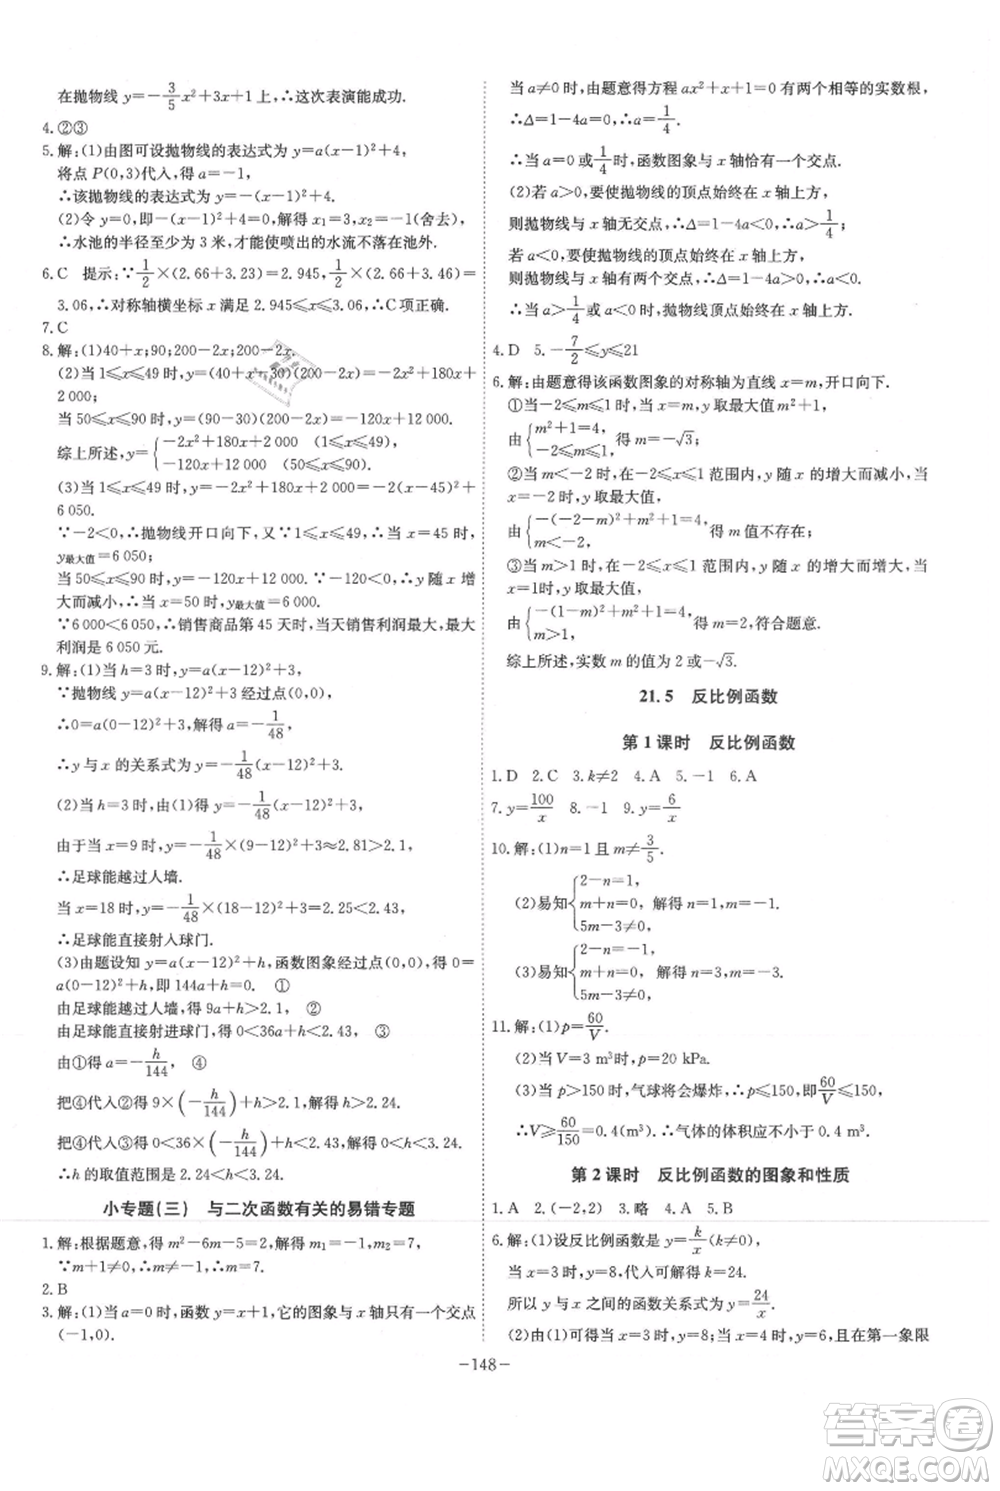 在抛物线 y=-3/5x²+3x+1 上,∴这次表演能成功.
4.②③
5.解:(1)由图可设抛物线的表达式为 y=a(x-1)²+4,
将点 P(0,3)代入,得 a=-1,
∴该抛物线的表达式为 y=-(x-1)²+4.
(2)令 y=0,即-(x-1)²+4=0,解得 x₁=3,x₂=-1(舍去),
∴水池的半径至少为 3 米,才能使喷出的水流不落在池外.
6.C 提示:∵1/2×(2.66+3.23)=2.945,1/2×(2.66+3.46)=
3.06,∴对称轴横坐标 x 满足 2.945≤x≤3.06,∴C 项正确.
7.C
8.解:(1)40+x;90;200-2x;200-2x.
(2)当 1≤x≤49 时,y=(40+x-30)(200-2x)=-2x²+180x+
2 000;
当 50≤x≤90 时,y=(90-30)(200-2x)=-120x+12 000,
综上所述,y={-2x²+180x+2 000 (1≤x≤49),
-120x+12 000 (50≤x≤90).
(3)当 1≤x≤49 时,y=-2x²+180x+2 000=-2(x-45)²+
6 050.
∵-2<0,∴抛物线开口向下,又∵1≤x≤49,∴当 x=45 时,
y最大值=6 050;
当 50≤x≤90 时,y=-120x+12 000,∵-120<0,∴y 随 x 增
大而减小,∴当 x=50 时,y最大值=6 000.
∵6 000<6 050,∴销售商品第 45 天时,当天销售利润最大,最大
利润是 6 050 元.
9.解:(1)当 h=3 时,y=a(x-12)²+3,
∵抛物线 y=a(x-12)²+3 经过点(0,0),
∴0=a(0-12)²+3,解得 a=-1/48,
∴y 与 x 的关系式为 y=-1/48(x-12)²+3.
(2)当 h=3 时,由(1)得 y=-1/48(x-12)²+3,
由于当 x=9 时,y=-1/48×(9-12)²+3≈2.81>2.1,
∴足球能越过人墙.
当 x=18 时,y=-1/48×(18-12)²+3=2.25<2.43,
∴足球能直接射入球门.
(3)由题设知 y=a(x-12)²+h,函数图象经过点(0,0),得 0=
a(0-12)²+h,即 144a+h=0. ①
由足球能越过人墙,得 9a+h>2.1, ②
由足球能直接射进球门,得 0<36a+h<2.43, ③
由①得 a=-h/144, ④
把④代入②得 9×(-h/144)+h>2.1,解得 h>2.24.
把④代入③得 0<36×(-h/144)+h<2.43,解得 0<h<3.24.
∴h 的取值范围是 2.24<h<3.24.
小专题(三) 与二次函数有关的易错专题
1.解:根据题意,得 m²-6m-5=2,解得 m₁=-1,m₂=7,
∵m+1≠0,∴m≠-1,∴m=7.
2.B
3.解:(1)当 a=0 时,函数 y=x+1,它的图象与 x 轴只有一个交点
(-1,0).
当 a≠0 时,由题意得方程 ax²+x+1=0 有两个相等的实数根,
∴Δ=1-4a=0,∴a=1/4.
∴当 a=0 或 1/4 时,函数图象与 x 轴恰有一个交点.
(2)若 a>0,要使抛物线的顶点始终在 x 轴上方,
则抛物线与 x 轴无交点,∴Δ=1-4a<0,∴a>1/4;
若 a<0,要使抛物线的顶点始终在 x 轴上方,
则抛物线与 x 轴必有两个交点,∴Δ=1-4a>0,∴a<1/4.
∴当 a>1/4 或 a<0 时,抛物线的顶点始终在 x 轴上方.
4.D 5.-7/2≤y≤21
6.解:由题意得该函数图象的对称轴为直线 x=m,开口向下.
①当-2≤m≤1 时,当 x=m 时,y 取最大值 m²+1,
由{m²+1=4,
-2≤m≤1,得 m=-√3;
②当 m<-2 时,在-2≤x≤1 范围内,y 随 x 的增大而减小,当
x=-2 时,y 取最大值,
由{-(-2-m)²+m²+1=4,
m<-2,得 m 值不存在;
③当 m>1 时,在-2≤x≤1 范围内,y 随 x 的增大而增大,当
x=1时,y 取最大值,
由{-(1-m)²+m²+1=4,
m>1,得 m=2,符合题意.
综上所述,实数 m 的值为 2 或-√3.
21.5 反比例函数
第 1 课时 反比例函数
1.D 2.C 3.k≠2 4.A 5.-1 6.A
7.y=100/x 8.-1 9.y=6/x
10.解:(1)n=1 且 m≠3/5.
(2)易知{2-n=1,
m+n=0,解得 n=1,m=-1.
5m-3≠0,
(3)易知{2-n=1,
m+n=0,解得 n=1,m=-1.
5m-3≠0,
11.解:(1)p=60/V.
(2)当 V=3 m³时,p=20 kPa.
(3)当 p>150 时,气球将会爆炸,∴p≤150,即60/V≤150,
∴V≥60/150=0.4(m³),∴气体的体积应不小于 0.4 m³.
第 2 课时 反比例函数的图象和性质
1.A 2.(-2,2) 3.略 4.A 5.B
6.解:(1)设反比例函数是 y=k/x(k≠0),
当 x=3 时,y=8,代入可解得 k=24.
所以 y 与 x 之间的函数关系式为 y=24/x.
(2)由(1)可得当 x=3 时,y=8;当 x=4 时,y=6,且在第一象限
-148-
答案圈
MXQE.COM